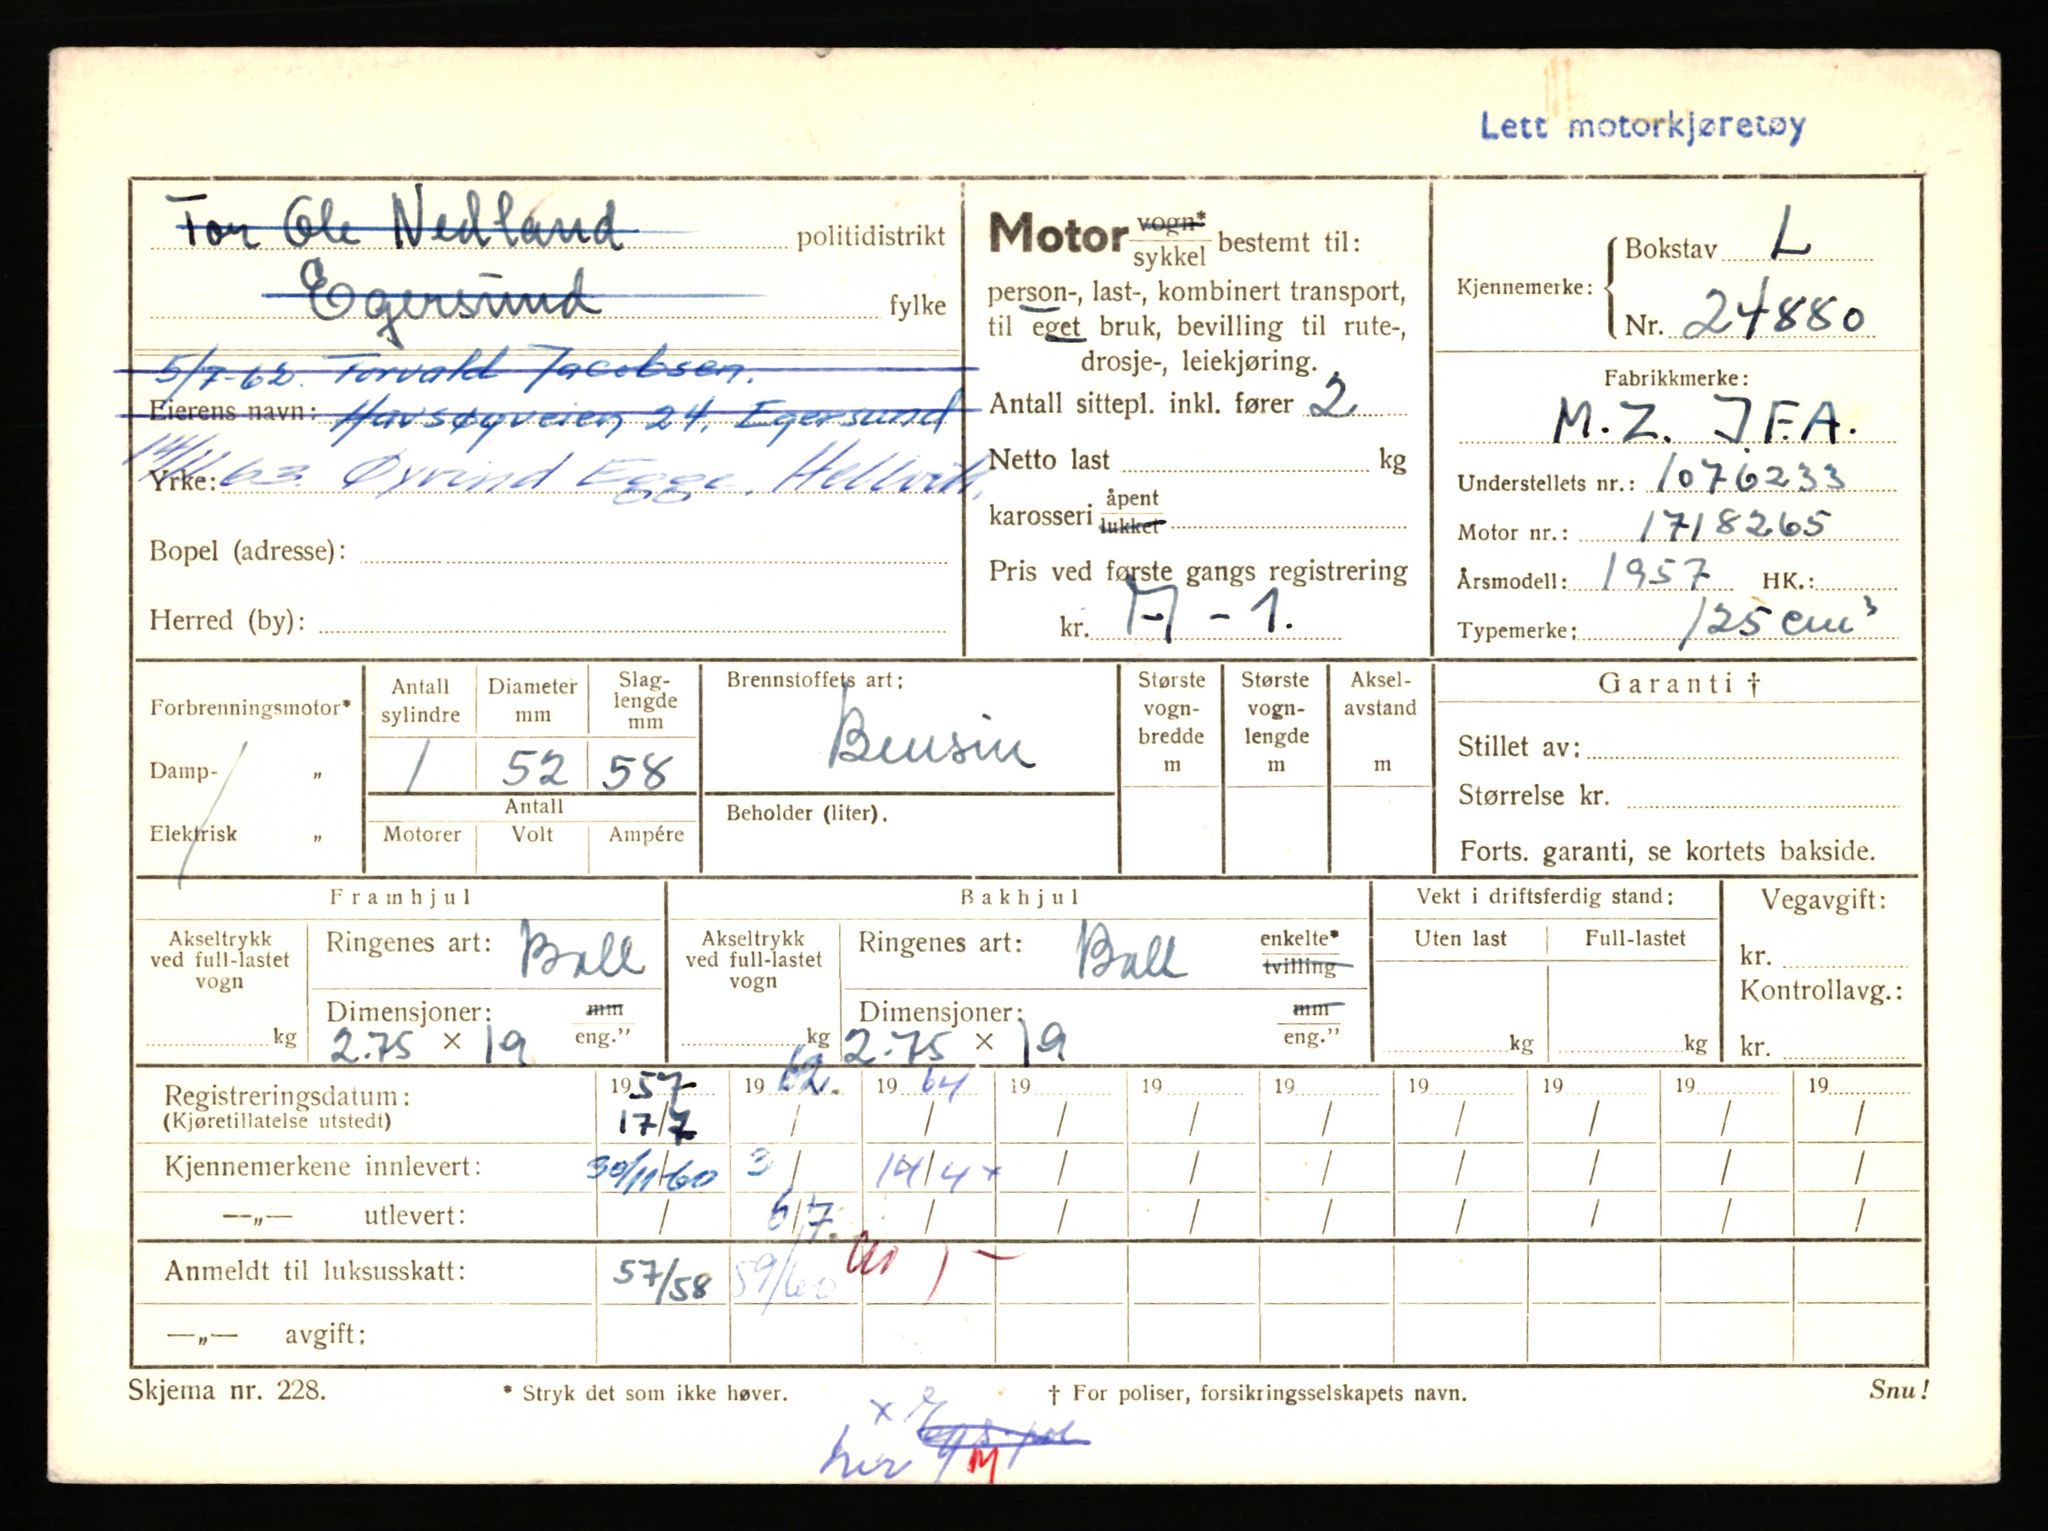 Lett motorkjøretøy
Tor Ole Nedland politidistrikt
Egersund fylke
5/7-62. Torvald Jacobsen.
Eierens navn: Havsøyveien 24, Egersund
14/11 63. Øyvind Egge, Hellvik.
Yrke:
Bopel (adresse):
Herred (by):
Motor vogn* sykkel bestemt til:
person-, last-, kombinert transport,
til eget bruk, bevilling til rute-,
drosje-, leiekjøring.
Antall sittepl. inkl. fører 2
Netto last kg
karosseri åpent lukket
Pris ved første gangs registrering
kr. M - 1.
Kjennemerke: Bokstav L
Nr. 24880
Fabrikkmerke:
M.Z. J.F.A.
Understellets nr.: 1076233
Motor nr.: 1718265
Årsmodell: 1957 HK.:
Typemerke: 125 cm³
Forbrenningsmotor*
Damp- „
Elektrisk „
Antall sylindre Diameter mm Slag-lengde mm
1 52 58
Antall
Motorer Volt Ampére
Brennstoffets art:
Bensin
Beholder (liter).
Største vogn-bredde m
Største vogn-lengde m
Aksel-avstand m
Garanti †
Stillet av:
Størrelse kr.
Forts. garanti, se kortets bakside.
Framhjul
Akseltrykk ved full-lastet vogn kg
Ringenes art: Ball
Dimensjoner: mm eng.”
2.75 × 19
Bakhjul
Akseltrykk ved full-lastet vogn kg
Ringenes art: Ball enkelte* tvilling
Dimensjoner: mm eng.”
2.75 × 19
Vekt i driftsferdig stand:
Uten last Full-lastet
kg kg
Vegavgift:
kr.
Kontrollavg.:
kr.
Registreringsdatum: 1957 1962. 1964 19 19 19 19 19 19 19
(Kjøretillatelse utstedt) 17/7 / / / / / / / / /
Kjennemerkene innlevert: 30/11-60 3/ 14/4 x / / / / / / /
—„— utlevert: / 6/7. / / / / / / / /
Anmeldt til luksusskatt: 57/58 59/60
—„— avgift:
Skjema nr. 228. * Stryk det som ikke høver. † For poliser, forsikringsselskapets navn. Snu!
x
her
M